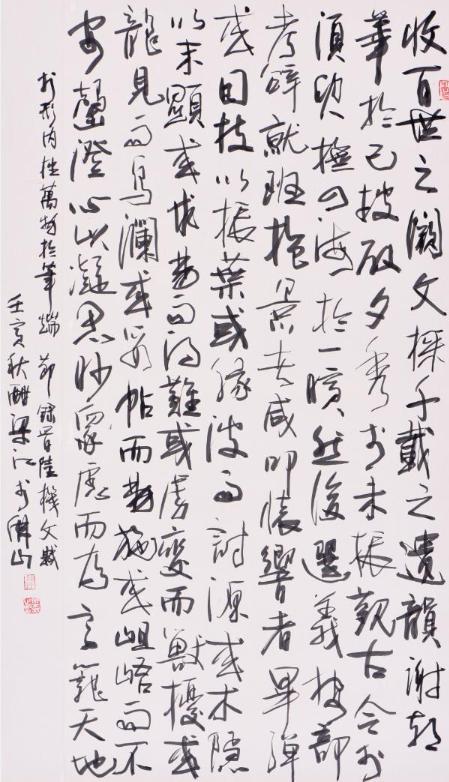 收百世之闕文採千載之遺韻謝朝
華於已披啟夕秀於未振觀古今於
須臾撫四海於一瞬然後選義按部
考辭就班抱景者咸叩懷響者畢彈
或因枝以振葉或緣波而討源或本隱
以末顯或求易而得難或虎變而獸擾或
龍見而鳥瀾或妥帖而易施或岨峿而不
安罄澄心以凝思眇眾慮而為言籠天地
於形內挫萬物於筆端 節錄晉陸機文賦
壬寅秋酣梁江於佛山